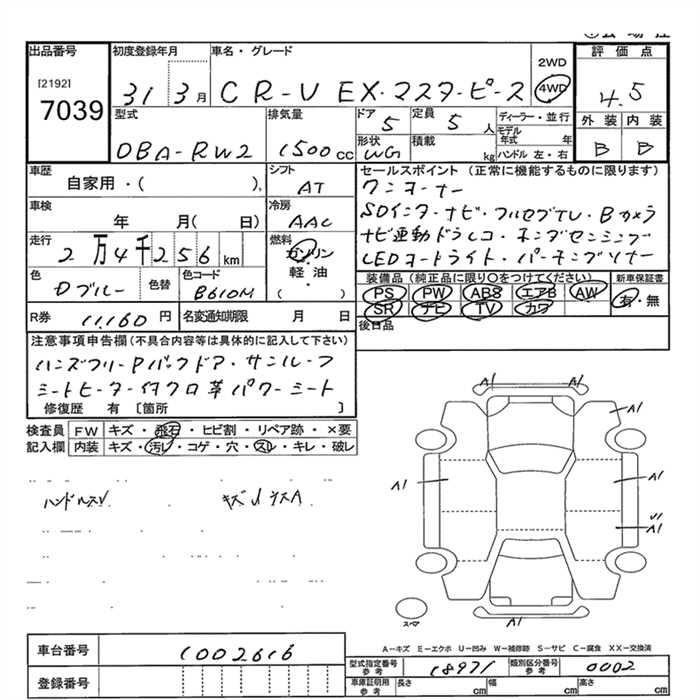 出品番号
[2192]
7039
初度登録年月
31 3月
車名・グレード
CR-V EX・マスターピース
2WD
4WD
評価点
4.5
外装 内装
B B
型式
DBA-RW2
排気量
1500cc
ドア
5
定員
5人
形状
WG
積載
kg
ディーラー・並行
モデル年式 年
ハンドル 左・右
車歴
自家用・( ),
シフト
AT
セールスポイント (正常に機能するものに限ります)
ワンオーナー
SDインターナビ・フルセグTV・Bカメラ
ナビ連動ドラレコ・ホンダセンシング
LEDオートライト・パーキングソナー
車検
年 月( 日)
冷房
AAC
走行
2万4千256km
燃料
ガソリン
軽油・
( )
色
Dブルー
色替
色コード
B610M
装備品 (純正品に限り〇をつけてください)
PS PW ABS エアB AW
SR ナビ TV カワ
新車保証書
有・無
R券
11,160円
名変通知期限 月 日
後日品
注意事項申告欄(不具合内容等は具体的に記入して下さい)
ハンズフリーPバックドア・サンルーフ
シートヒーター付クロ革パワーシート
修復歴 有 〔箇所 〕
検査員
記入欄
FW キズ・飛石・ヒビ割・リペア跡・×要
内装 キズ・汚レ・コゲ・穴・スレ・キレ・破レ
ハンドルスレ
A1 A1
A1
A1 A1
A1
A1
スペア
A−キズ E−エクボ U−凹み W−補修跡 S−サビ C−腐食 XX−交換済
車台番号
1002616
登録番号
型式指定番号
参考
18971
類別区分番号
参考
0002
車庫証明用
参考
長さ cm 幅 cm 高さ cm